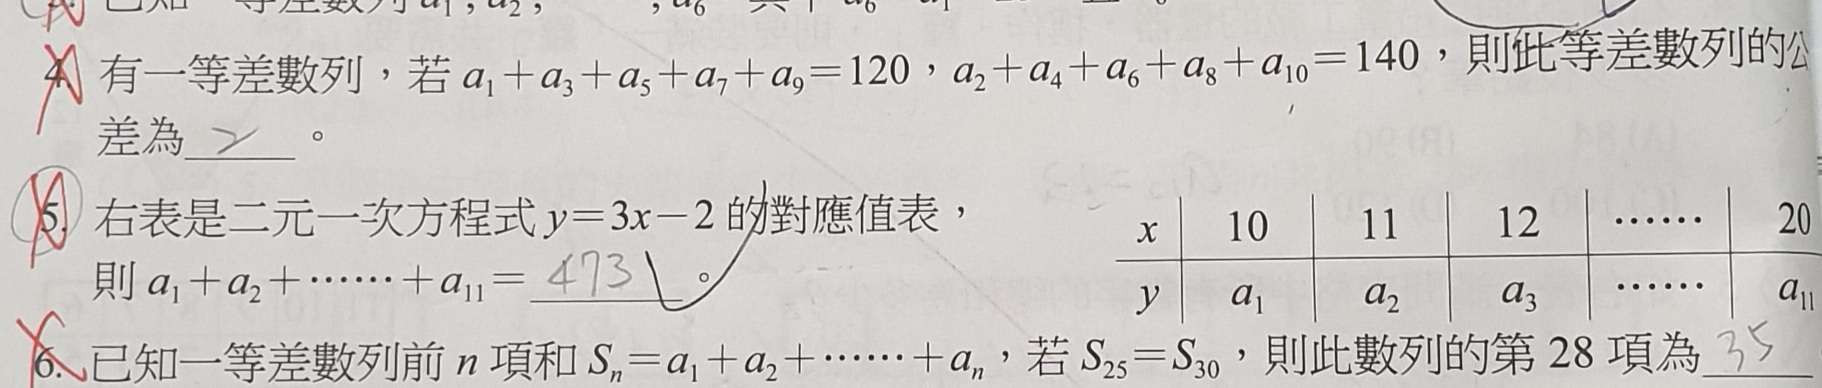 4. 有一等差數列，若 a₁＋a₃＋a₅＋a₇＋a₉＝120，a₂＋a₄＋a₆＋a₈＋a₁₀＝140，則此等差數列的公
差為 2 。
5. 右表是二元一次方程式 y＝3x－2 的對應值表，
則 a₁＋a₂＋⋯⋯＋a₁₁＝ 473 。
x 10 11 12 ⋯⋯ 20
y a₁ a₂ a₃ ⋯⋯ a₁₁
6. 已知一等差數列前 n 項和 Sₙ＝a₁＋a₂＋⋯⋯＋aₙ，若 S₂₅＝S₃₀，則此數列的第 28 項為 35